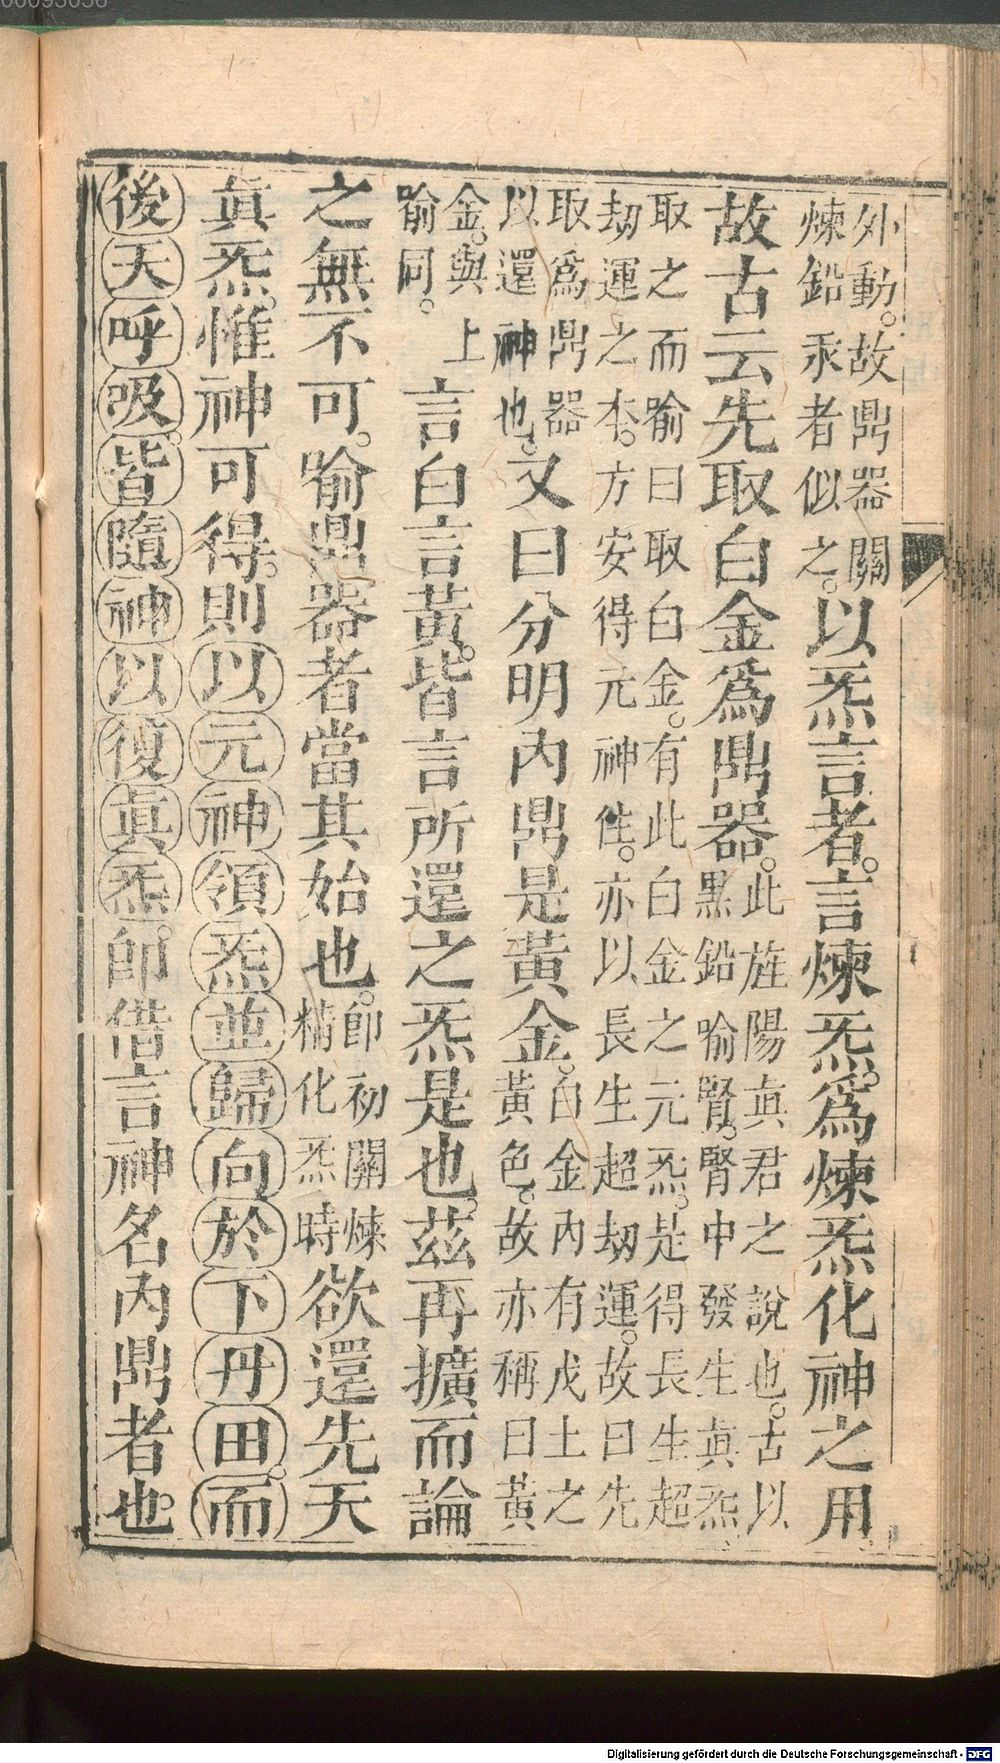 外動。故鼎器關
煉鉛汞者似之。
以炁言者。言煉炁。爲煉炁化神之用
故古云先取白金爲鼎器。
此旌陽眞君之說也。古以
黑鉛喻腎。腎中發生眞炁。
取之而喻曰取白金。有此白金之元炁。是得長生超
劫運之本。方安得元神住。亦以長生超劫運。故曰先
取爲鼎器
以還神也。
又曰分明內鼎是黃金。
白金內有戊土之
黃色。故亦稱曰黃
金。與上
喻同。
言白言黃。皆言所還之炁是也。茲再擴而論
之無不可。喻鼎器者當其始也。
卽初關煉
精化炁時
欲還先天
眞炁。惟神可得。則以元神領炁並歸向於下丹田。而
後天呼吸。皆隨神以復眞炁。卽借言神名內鼎者也。
Digitalisierung gefördert durch die Deutsche Forschungsgemeinschaft - DFG